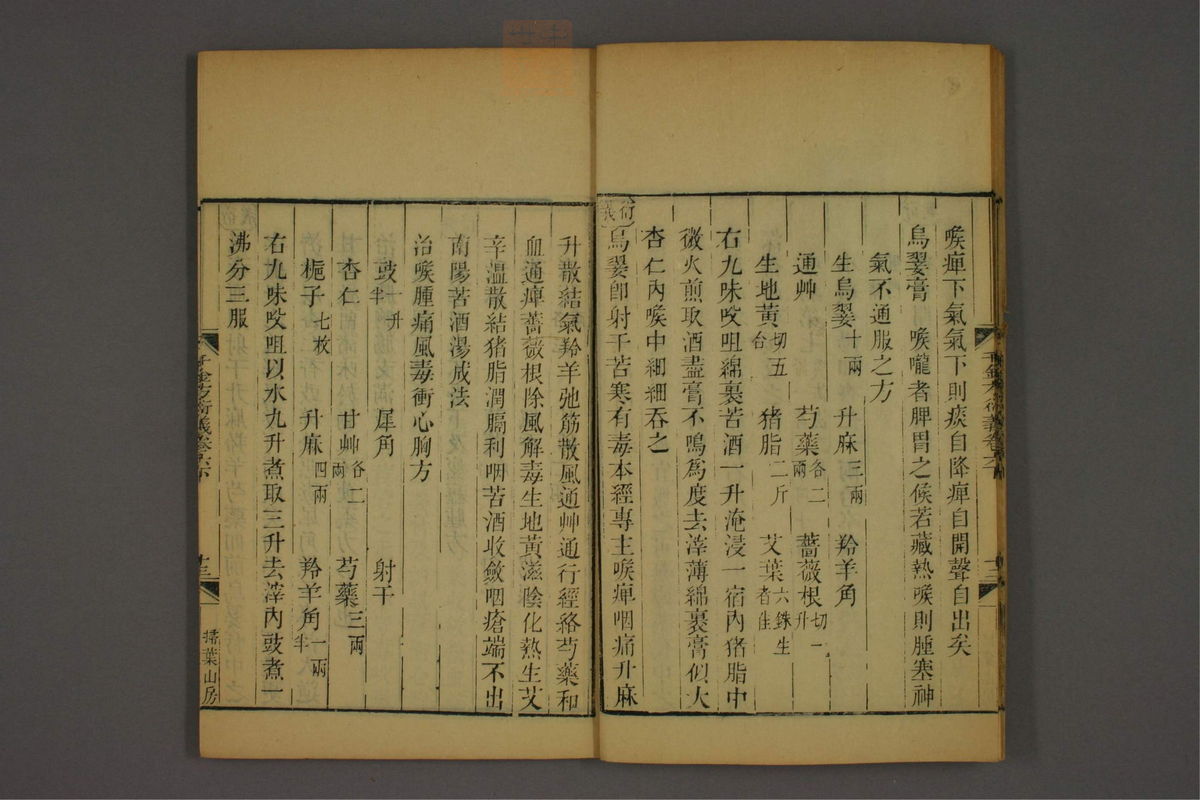 喉痺下氣氣下則痰自降痺自開聲自出矣
烏翣膏 喉嚨者脾胃之候若藏熱喉則腫塞神
氣不通服之方
生烏翣十兩 升麻三兩 羚羊角
通艸 芍藥各二兩 薔薇根切一升
生地黃切五合 猪脂二斤 艾葉六銖生者佳
右九味㕮咀綿裹苦酒一升淹浸一宿內猪脂中
微火煎取酒盡膏不鳴爲度去滓薄綿裹膏似大
杏仁內喉中細細吞之
衍義 烏翣卽射干苦寒有毒本經專主喉痺咽痛升麻
升散結氣羚羊弛筋散風通艸通行經絡芍藥和
血通痺薔薇根除風解毒生地黃滋陰化熱生艾
辛溫散結猪脂潤膈利咽苦酒收斂咽瘡端不出
南陽苦酒湯成法
治喉腫痛風毒衝心胸方
豉一升半 犀角 射干
杏仁 甘艸各二兩 芍藥三兩
梔子七枚 升麻四兩 羚羊角一兩半
右九味㕮咀以水九升煮取三升去滓內豉煮一
沸分三服
千金方衍義卷六下
十三
掃葉山房